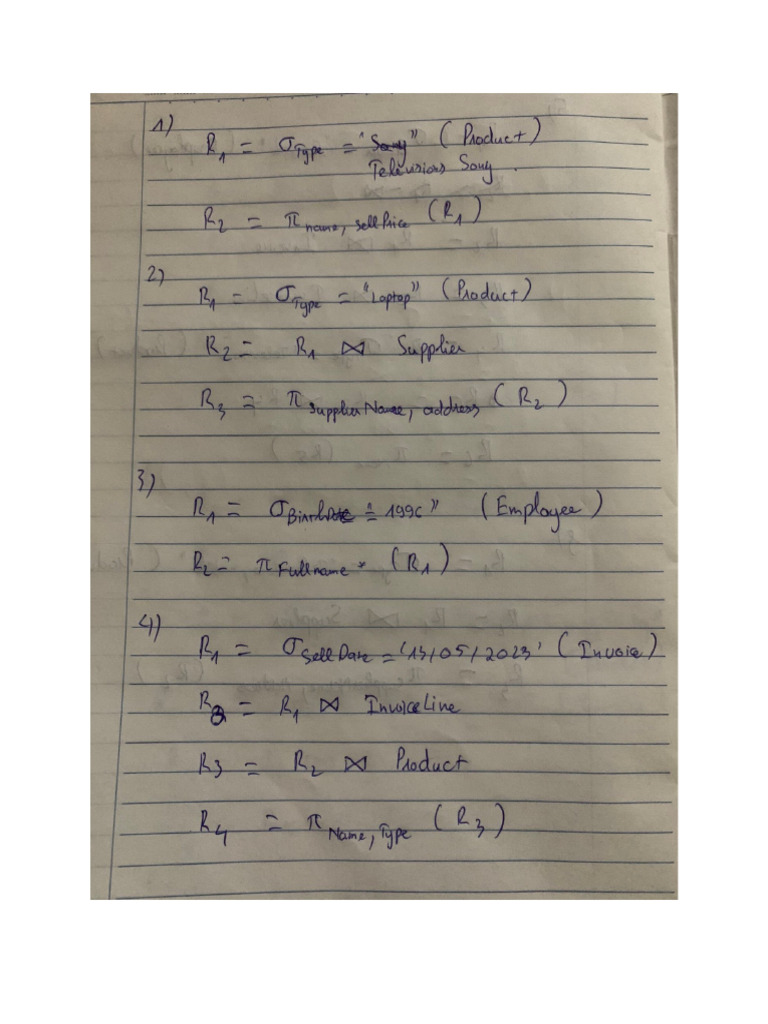 1)
R1 = σType = "Sony" (Product)
Televisions Sony .
R2 = π name, sellPrice (R1)
2)
R1 = σType = "Laptop" (Product)
R2 = R1 ⋈ Supplier
R3 = π SupplierName, address (R2)
3)
R1 = σBirthDate = 199 " (Employee)
R2 = π Fullname * (R1)
4)
R1 = σSellDate = '13/05/2023' (Invoice)
R2 = R1 ⋈ InvoiceLine
R3 = R2 ⋈ Product
R4 = π Name, Type (R3)